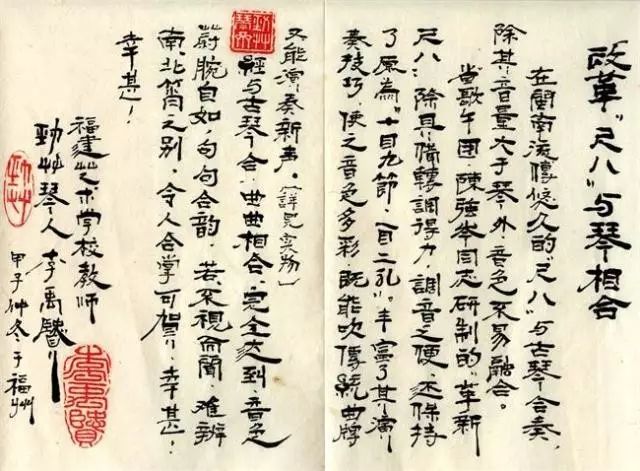 改革“尺八”与琴相合
在闽南流传悠久的“尺八”与古琴合奏，
除其音量大于琴外，音色不易融合。
省歌午团陈强岑同志研制的“革新
尺八”除具备转调得力，调音之便，还保持
了原为“十目九节，一目二孔”。丰富了其演
奏技巧，使之音色多彩，既能吹传统曲牌
又能演奏新声。（詳見实物）
经与古琴合，曲曲相合，完全达到，音色
蔚腕自如，句句合韵，若不視而闻，难辨
南北之别，令人合掌可賀！幸甚！
幸甚！
福建艺术学校教师
劲草琴人 李禹賢
甲子仲冬于福州